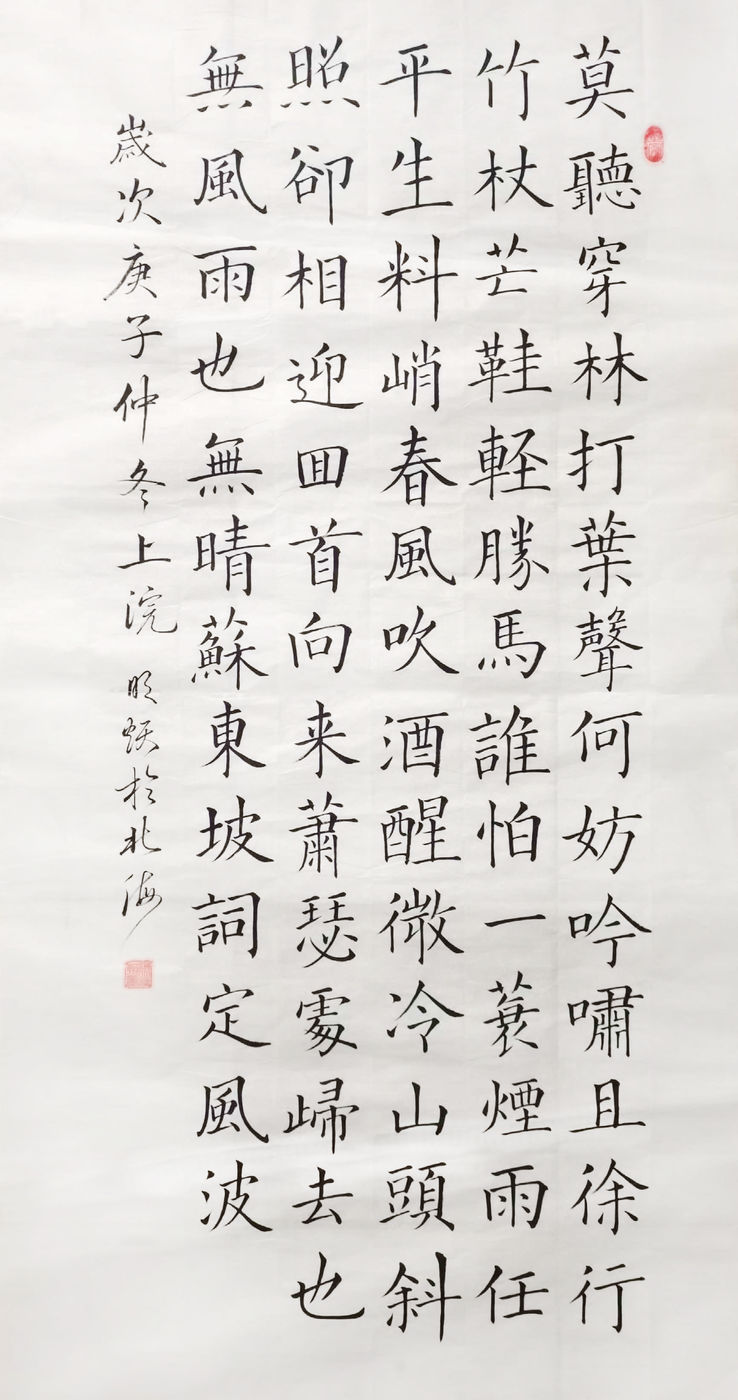 莫聽穿林打葉聲何妨吟嘯且徐行
竹杖芒鞋軽勝馬誰怕一蓑煙雨任
平生料峭春風吹酒醒微冷山頭斜
照卻相迎囬首向来蕭瑟處歸去也
無風雨也無晴蘇東坡詞定風波
歲次庚子仲冬上浣 明 於北海